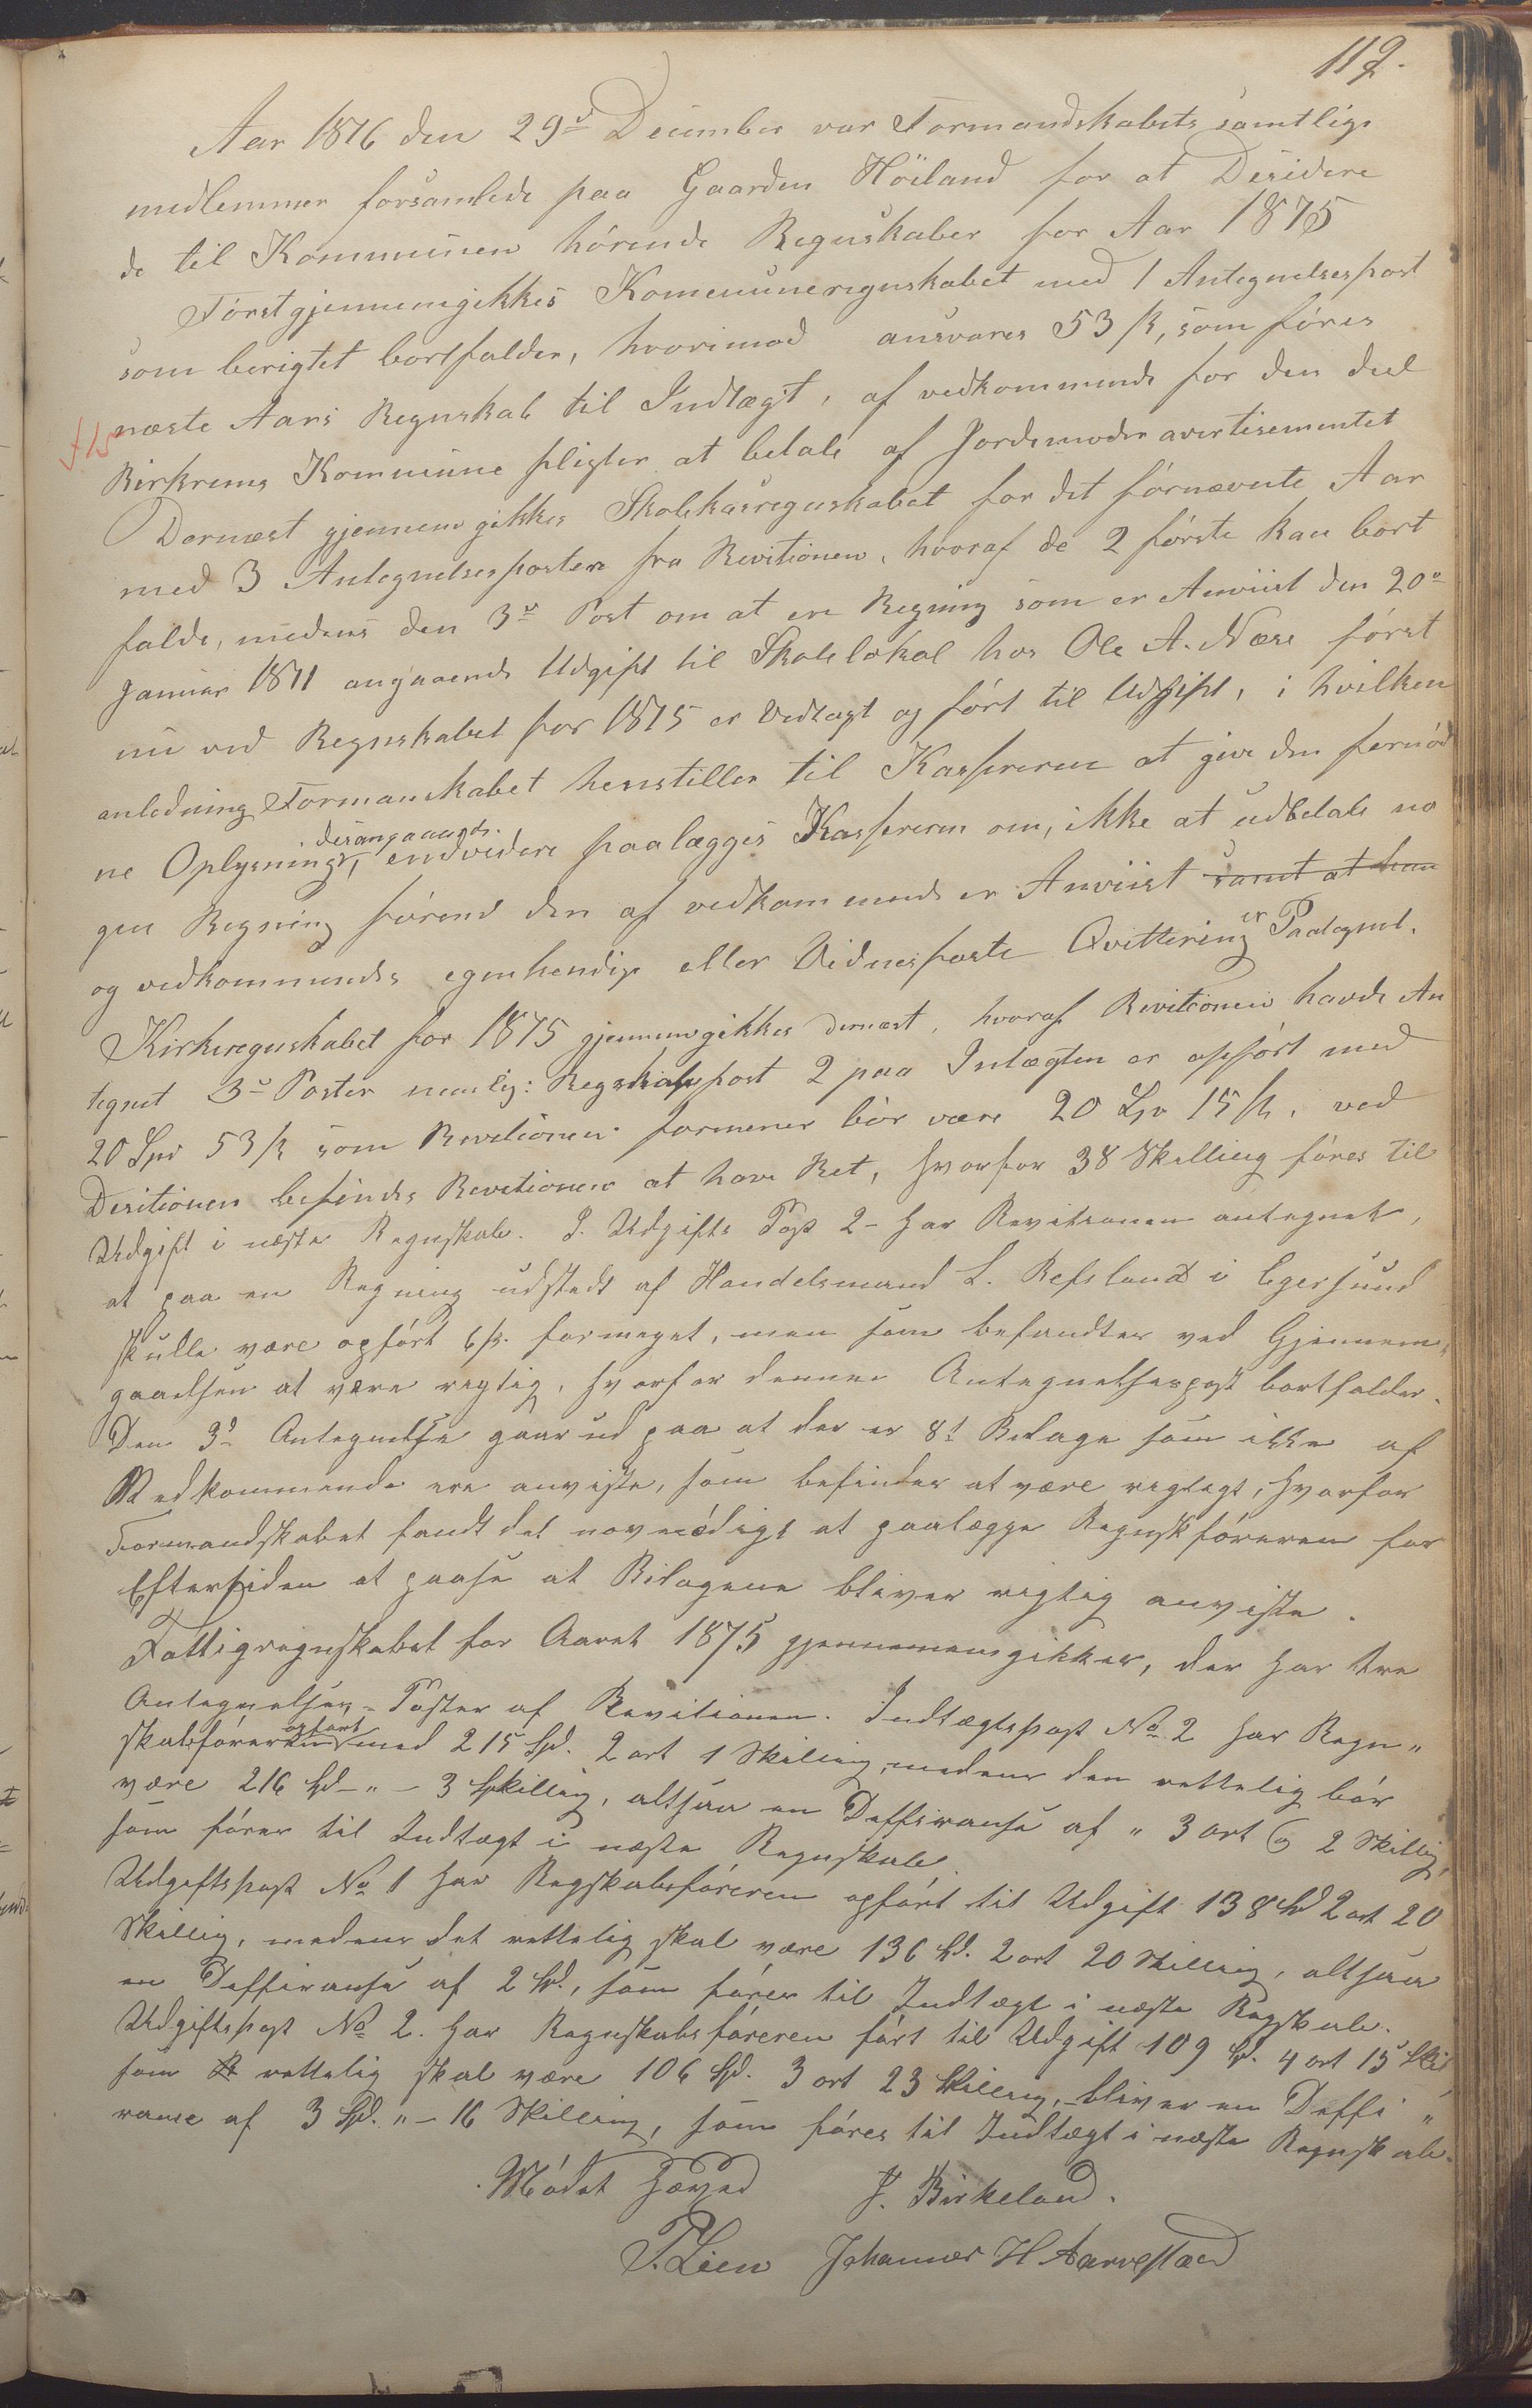 112.
Aar 1876 den 29de December var Formandskabets samtlige
medlemmer forsamlede paa Gaarden Höiland for at Desidere
de til Kommunen hörende Regnskaber for Aar 1875
Först gjennemgikkes Kommuneregnskabet med 1 Antegnelsespost
som berigtet bortfalder, hvorimod ansvares 53 ß, som föres
næste Aars Regnskab til Indtægt, af vedkommende for den deel
Birkrems Kommune pligter at betale af Jordemoder avertisementet
Dernæst gjennemgikkes Skolekasregnskabet for det fórnævnte Aar
med 3 Antegnelsesposter fra Revitionen, hvoraf de 2 förste kan bort
falde, medens den 3de Post om at en Regning som er Anviist den 20de
Januar 1871 angaaende Udgift til Skolelokal hos Ole A. Næse först
nu ved Regnskabet for 1875 er Vedlagt og fört til Udgift, i hvilken
anledning Formanskabet henstiller til Kassereren at give den fornöd
ne Oplysninger desangaaende, endvidere paalægges Kassereren om, ikke at udbetale no
gen Regning förend den af vedkommende er Anviist samt at han
og vedkommendes egenhendige eller Vidnesfaste Qvittering er Paategnet.
Kirkeregnskabet for 1875 gjennemgikkes dernæst, hvoraf Revitionen havde An
tegnet 3de Poster nemlig: Regskabspost 2 paa Intægten er opfört med
20 Spd 53 ß som Revitionen formener bör være 20 Spd 15 ß, ved
Desitionen befindes Revitionen at have Ret, hvorfor 38 Skilling föres til
Udgift i næste Regnskab. I Udgifts Post 2 har Revitionen antegnet,
at paa en Regning udstedt af Handelsmand L. Refsland i Egersund
skulle være opfört 6 ß. formeget, men som befandtes ved Gjennem,
gaaelsen at være rigtig, hvorfor denne Antegnelsespost bortfalder.
Den 3de Antegnelse gaar ud paa at der er 8t Bilage som ikke af
Vedkommende ere anviste, som befindes at være rigtigt, hvorfor
Formandskabet fandt det novnödigt at paalægge Regnskföreren for
Eftertiden at paase at Bilagene bliver rigtig anviste.
Fattigregnskabet for Aaret 1875 gjennemgikkes, der har tre
Antegnelses-Poster af Revitionen. Indtægtspost No 2 har Regn„
skabsföreren opfört med 215 Spd. 2 ort 1 Skilling, medens den rettelig bör
være 216 Spd - „ - 3 Skilling, altsaa en Defferanse af „ 3 ort og 2 Skillig,
som föres til Indtægt i næste Regnskab.
Udgiftspost No 1 har Regskabsföreren opfört til Udgift 138 Spd 2 ort 20
Skillig, medens det rettelig skal være 136 Spd. 2 ort 20 Skilling, altsaa
en Defferanse af 2 Spd., som förer til Indtægt i næste Regskab.
Udgiftspost No 2. har Regnskabsföreren fört til Udgift 109 Spd. 4 ort 15 Skil,
som rettelig skal være 106 Spd. 3 ort 23 Skilling, bliver en Deffe „
ranse af 3 Spd. „ - 16 Skilling, som föres til Indtægt i næste Regnskab.
Mödet hævet J. Birkeland.
P. Lien Johannes H Aarrestad